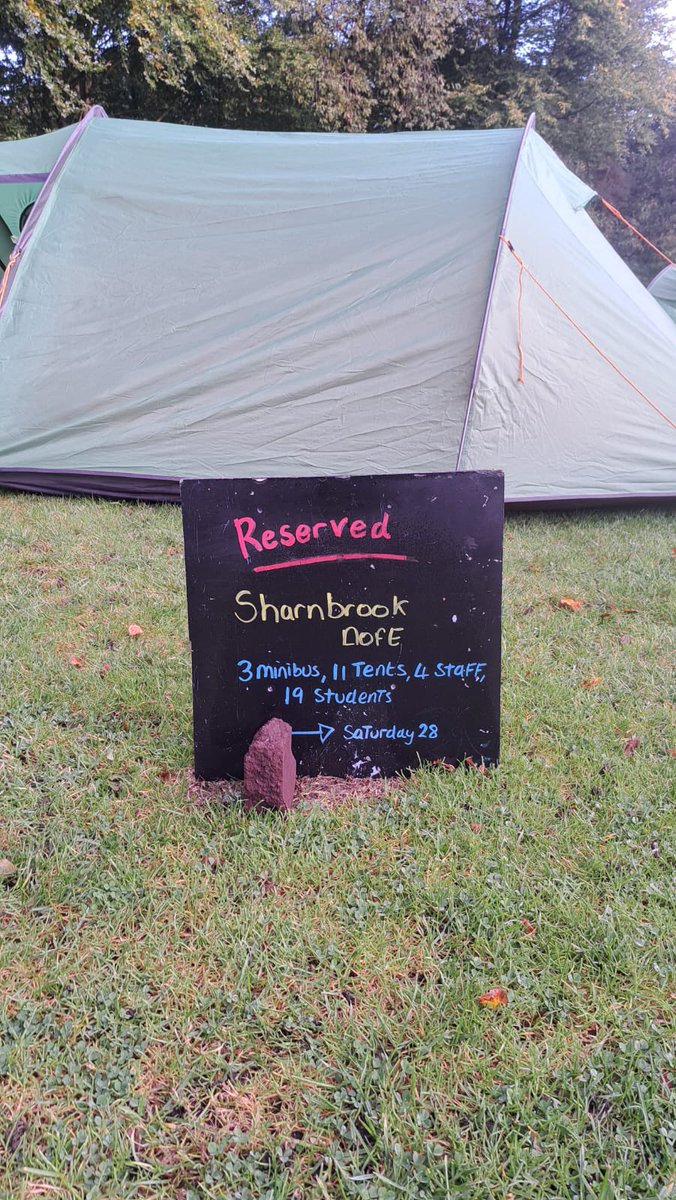 Reserved
Sharnbrook
DofE
3 minibus, 11 Tents, 4 Staff,
19 Students
→ Saturday 28